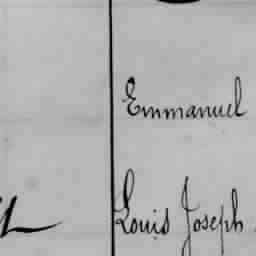 Emmanuel
Louis Joseph